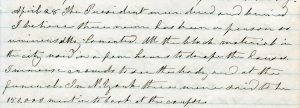 April 28 The President men dead and buried
I believe there never has been a person so
universally lamented. All the black material in
the city used in a few hours to drape the houses.
Immense crowds to see the body and at the
funeral. In N. York there were said to be
150,000 went in to look at the corpse